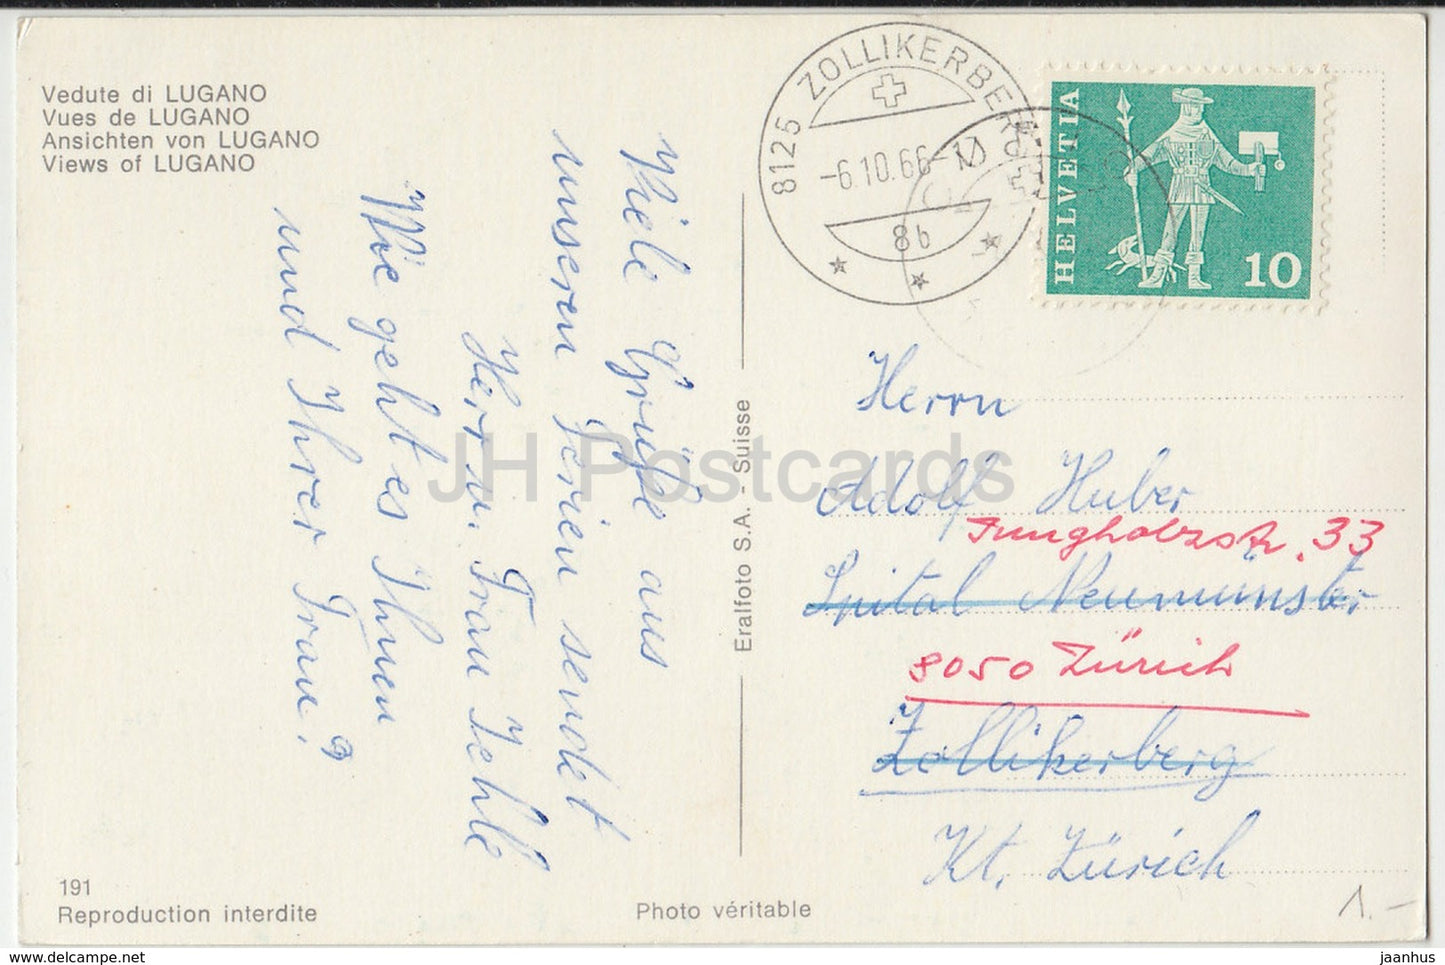 Vedute di LUGANO
Vues de LUGANO
Ansichten von LUGANO
Views of LUGANO
Viele Grüße aus
unseren Ferien sendet
Herr u. Frau Jehle
Wie geht es Ihnen
und Ihrer Frau?
191
Reproduction interdite
Photo véritable
Eralfoto S.A. - Suisse
8125 ZOLLIKERBERG
-6.10.66-
8b
HELVETIA
10
Herrn
Adolf Huber
Jungholzstr. 33
Spital Neumünster
8050 Zürich
Zollikerberg
Kt. Zürich
1.-
JH Postcards
www.delcampe.net
jaanhus